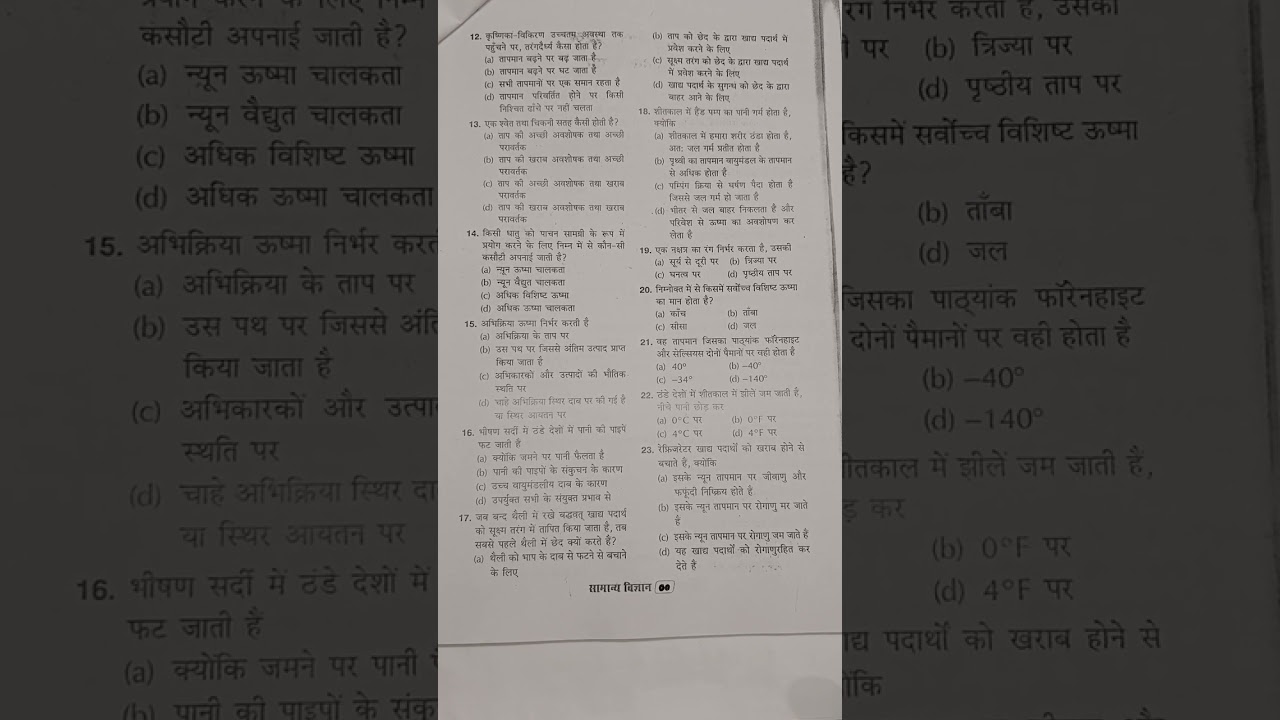 12. कृष्णिका-विकिरण उच्चतम अवस्था तक
पहुँचने पर, तरंगदैर्ध्य कैसा होता है?
(a) तापमान बढ़ने पर बढ़ जाता है
(b) तापमान बढ़ने पर घट जाता है
(c) सभी तापमानों पर एक समान रहता है
(d) तापमान परिवर्तित होने पर किसी
निश्चित ढाँचे पर नहीं चलता
13. एक श्वेत तथा चिकनी सतह कैसी होती है?
(a) ताप की अच्छी अवशोषक तथा अच्छी
परावर्तक
(b) ताप की खराब अवशोषक तथा अच्छी
परावर्तक
(c) ताप की अच्छी अवशोषक तथा खराब
परावर्तक
(d) ताप की खराब अवशोषक तथा खराब
परावर्तक
14. किसी धातु को पाचन सामग्री के रूप में
प्रयोग करने के लिए निम्न में से कौन-सी
कसौटी अपनाई जाती है?
(a) न्यून ऊष्मा चालकता
(b) न्यून वैद्युत चालकता
(c) अधिक विशिष्ट ऊष्मा
(d) अधिक ऊष्मा चालकता
15. अभिक्रिया ऊष्मा निर्भर करती है
(a) अभिक्रिया के ताप पर
(b) उस पथ पर जिससे अंतिम उत्पाद प्राप्त
किया जाता है
(c) अभिकारकों और उत्पादों की भौतिक
स्थति पर
(d) चाहे अभिक्रिया स्थिर दाब पर की गई है
या स्थिर आयतन पर
16. भीषण सर्दी में ठंडे देशों में पानी की पाइपें
फट जाती हैं
(a) क्योंकि जमने पर पानी फैलता है
(b) पानी की पाइपों के संकुचन के कारण
(c) उच्च वायुमंडलीय दाब के कारण
(d) उपर्युक्त सभी के संयुक्त प्रभाव से
17. जब बन्द थैली में रखे बद्धवत् खाद्य पदार्थ
को सूक्ष्म तरंग में तापित किया जाता है, तब
सबसे पहले थैली में छेद क्यों करते हैं?
(a) थैली को भाप के दाब से फटने से बचाने
के लिए
(b) ताप को छेद के द्वारा खाद्य पदार्थ में
प्रवेश करने के लिए
(c) सूक्ष्म तरंग को छेद के द्वारा खाद्य पदार्थ
में प्रवेश करने के लिए
(d) खाद्य पदार्थ के सुगन्ध को छेद के द्वारा
बाहर आने के लिए
18. शीतकाल में हैंड पम्प का पानी गर्म होता है,
क्योंकि
(a) शीतकाल में हमारा शरीर ठंडा होता है,
अतः जल गर्म प्रतीत होता है
(b) पृथ्वी का तापमान वायुमंडल के तापमान
से अधिक होता है
(c) पम्पिंग क्रिया से घर्षण पैदा होता है
जिससे जल गर्म हो जाता है
(d) भीतर से जल बाहर निकलता है और
परिवेश से ऊष्मा का अवशोषण कर
लेता है
19. एक नक्षत्र का रंग निर्भर करता है, उसकी
(a) सूर्य से दूरी पर (b) त्रिज्या पर
(c) घनत्व पर (d) पृष्ठीय ताप पर
20. निम्नोक्त में से किसमें सर्वोच्च विशिष्ट ऊष्मा
का मान होता है?
(a) काँच (b) ताँबा
(c) सीसा (d) जल
21. वह तापमान जिसका पाठ्यांक फॉरेनहाइट
और सेल्सियस दोनों पैमानों पर वही होता है
(a) 40° (b) –40°
(c) –34° (d) –140°
22. ठंडे देशों में शीतकाल में झीलें जम जाती हैं,
नीचे पानी छोड़ कर
(a) 0°C पर (b) 0°F पर
(c) 4°C पर (d) 4°F पर
23. रेफ्रिजरेटर खाद्य पदार्थों को खराब होने से
बचाते हैं, क्योंकि
(a) इसके न्यून तापमान पर जीवाणु और
फफूंदी निष्क्रिय होते हैं
(b) इसके न्यून तापमान पर रोगाणु मर जाते
हैं
(c) इसके न्यून तापमान पर रोगाणु जम जाते हैं
(d) यह खाद्य पदार्थों को रोगाणुरहित कर
देते हैं
सामान्य विज्ञान